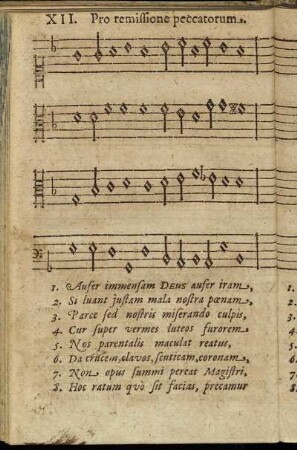 XII. Pro remissione peccatorum.
1. Aufer immensam Deus aufer iram,
2. Si luant justam mala nostra pœnam,
3. Parce sed nostris miserando culpis,
4. Cur super vermes luteos furorem
5. Nos parentalis maculat reatus,
6. Da crucem, clavos, senticam, coronam,
7. Non opus summi pereat Magistri,
8. Hoc ratum quò sit facias, precamur